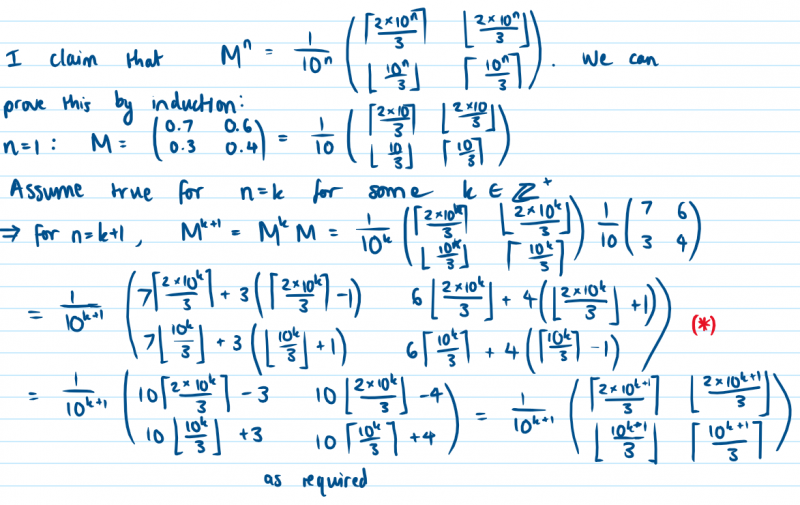 I claim that M^n = 1/10^n ( ⌈2×10^n/3⌉ ⌊2×10^n/3⌋ ; ⌊10^n/3⌋ ⌈10^n/3⌉ ). We can
prove this by induction:
n=1: M = ( 0.7 0.6 ; 0.3 0.4 ) = 1/10 ( ⌈2×10/3⌉ ⌊2×10/3⌋ ; ⌊10/3⌋ ⌈10/3⌉ )
Assume true for n=k for some k ∈ ℤ^+
⇒ for n=k+1, M^{k+1} = M^k M = 1/10^k ( ⌈2×10^k/3⌉ ⌊2×10^k/3⌋ ; ⌊10^k/3⌋ ⌈10^k/3⌉ ) 1/10 ( 7 6 ; 3 4 )
= 1/10^{k+1} ( 7⌈2×10^k/3⌉ + 3(⌈2×10^k/3⌉ -1) 6⌊2×10^k/3⌋ + 4(⌊2×10^k/3⌋ +1) ; 7⌊10^k/3⌋ + 3(⌊10^k/3⌋ +1) 6⌈10^k/3⌉ + 4(⌈10^k/3⌉ -1) ) (*)
= 1/10^{k+1} ( 10⌈2×10^k/3⌉ -3 10⌊2×10^k/3⌋ -4 ; 10⌊10^k/3⌋ +3 10⌈10^k/3⌉ +4 ) = 1/10^{k+1} ( ⌈2×10^{k+1}/3⌉ ⌊2×10^{k+1}/3⌋ ; ⌊10^{k+1}/3⌋ ⌈10^{k+1}/3⌉ )
as required